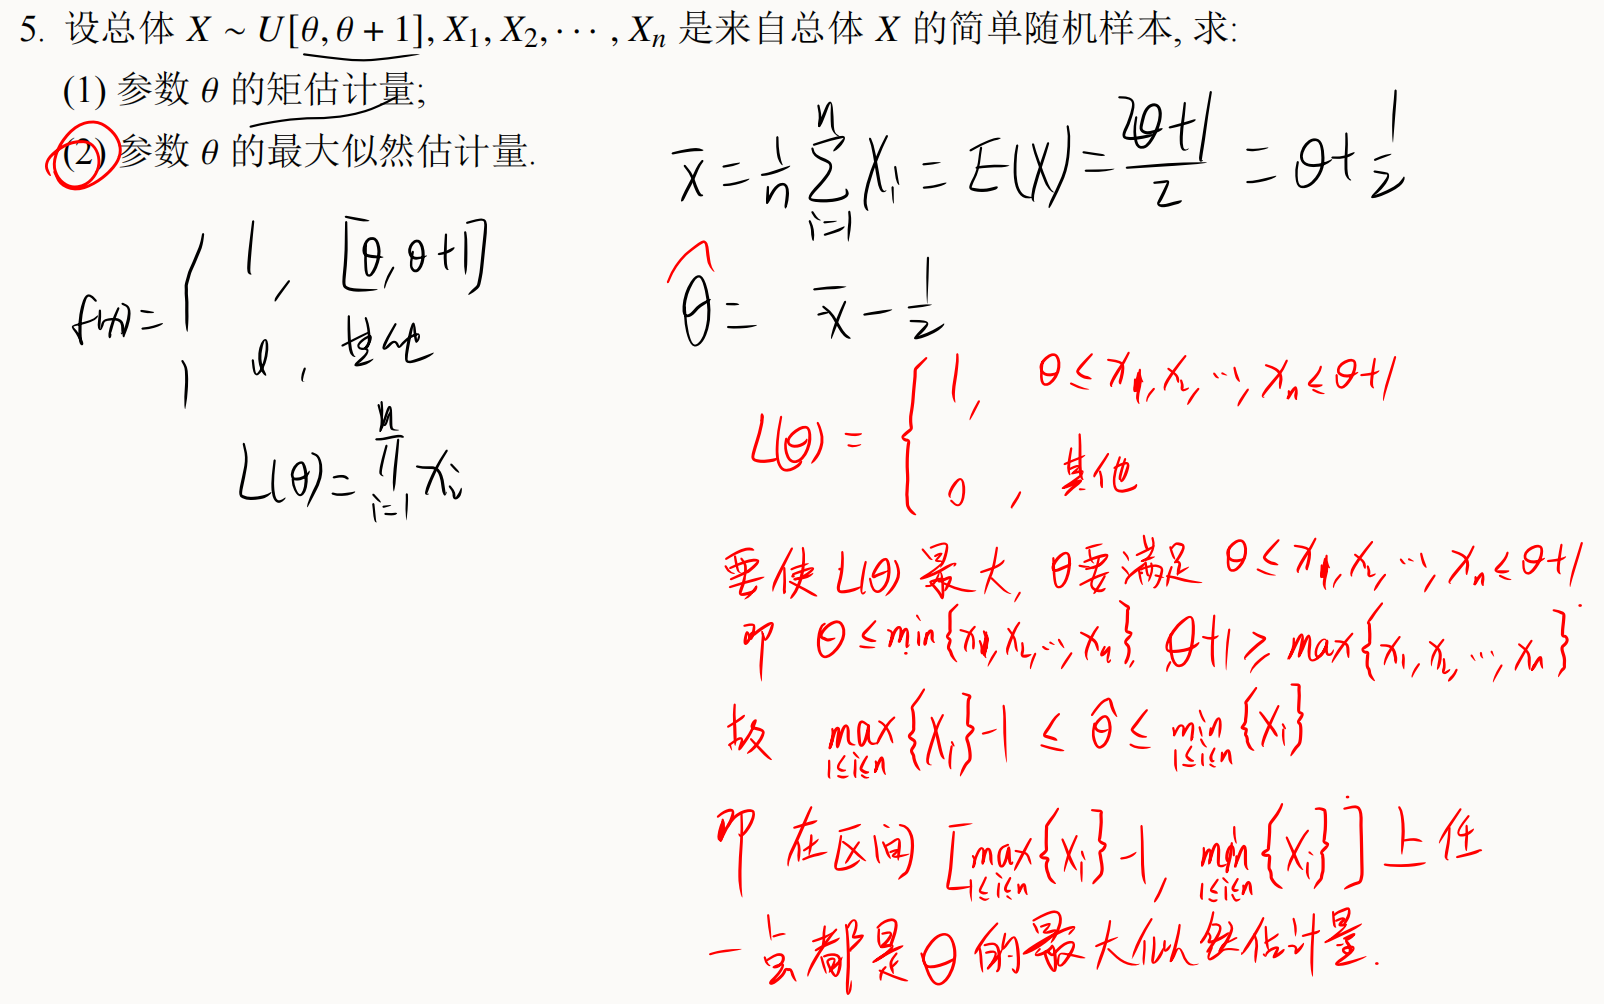 5. 设总体 X ~ U[θ, θ + 1], X₁, X₂, ⋯ , Xₙ 是来自总体 X 的简单随机样本, 求:
(1) 参数 θ 的矩估计量;
(2) 参数 θ 的最大似然估计量.
x̄ = 1/n ∑_{i=1}^{n} Xᵢ = E(X) = (2θ+1)/2 = θ + 1/2
f(x) = { 1, [θ, θ+1]
0, 其他
θ̂ = x̄ - 1/2
L(θ) = ∏_{i=1}^{n} xᵢ
L(θ) = { 1, θ ≤ x₁, x₂, ⋯, xₙ ≤ θ+1
0, 其他
要使 L(θ) 最大, θ要满足 θ ≤ x₁, x₂, ⋯, xₙ ≤ θ+1
即 θ ≤ min{x₁, x₂, ⋯, xₙ}, θ+1 ≥ max{x₁, x₂, ⋯, xₙ}
故 max_{1≤i≤n}{Xᵢ} - 1 ≤ θ̂ ≤ min_{1≤i≤n}{Xᵢ}
即 在区间 [max_{1≤i≤n}{Xᵢ} - 1, min_{1≤i≤n}{Xᵢ}] 上任
一点都是θ的最大似然估计量.